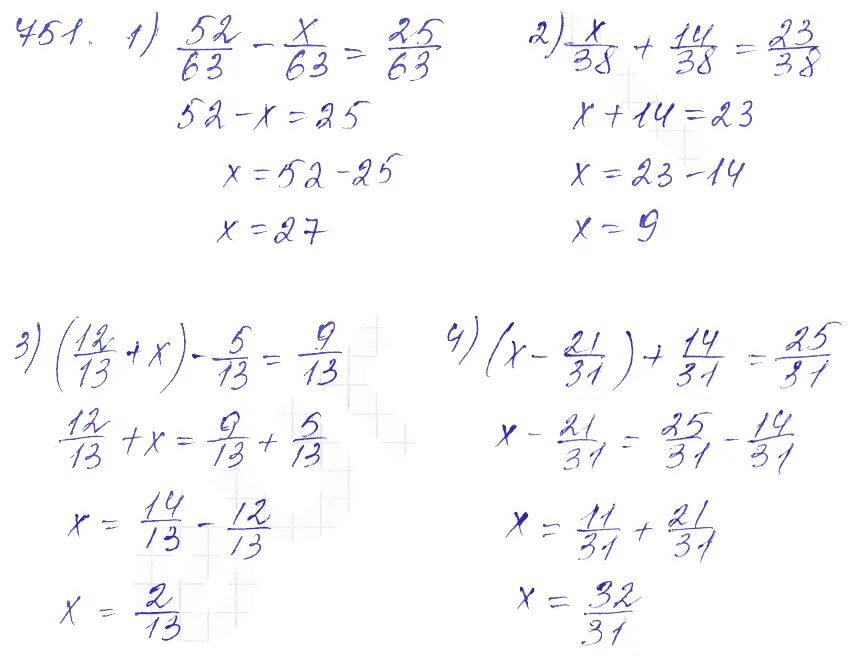 751. 1) 52/63 - x/63 = 25/63
52 - x = 25
x = 52 - 25
x = 27
2) x/38 + 14/38 = 23/38
x + 14 = 23
x = 23 - 14
x = 9
3) (12/13 + x) - 5/13 = 9/13
12/13 + x = 9/13 + 5/13
x = 14/13 - 12/13
x = 2/13
4) (x - 21/31) + 14/31 = 25/31
x - 21/31 = 25/31 - 14/31
x = 11/31 + 21/31
x = 32/31